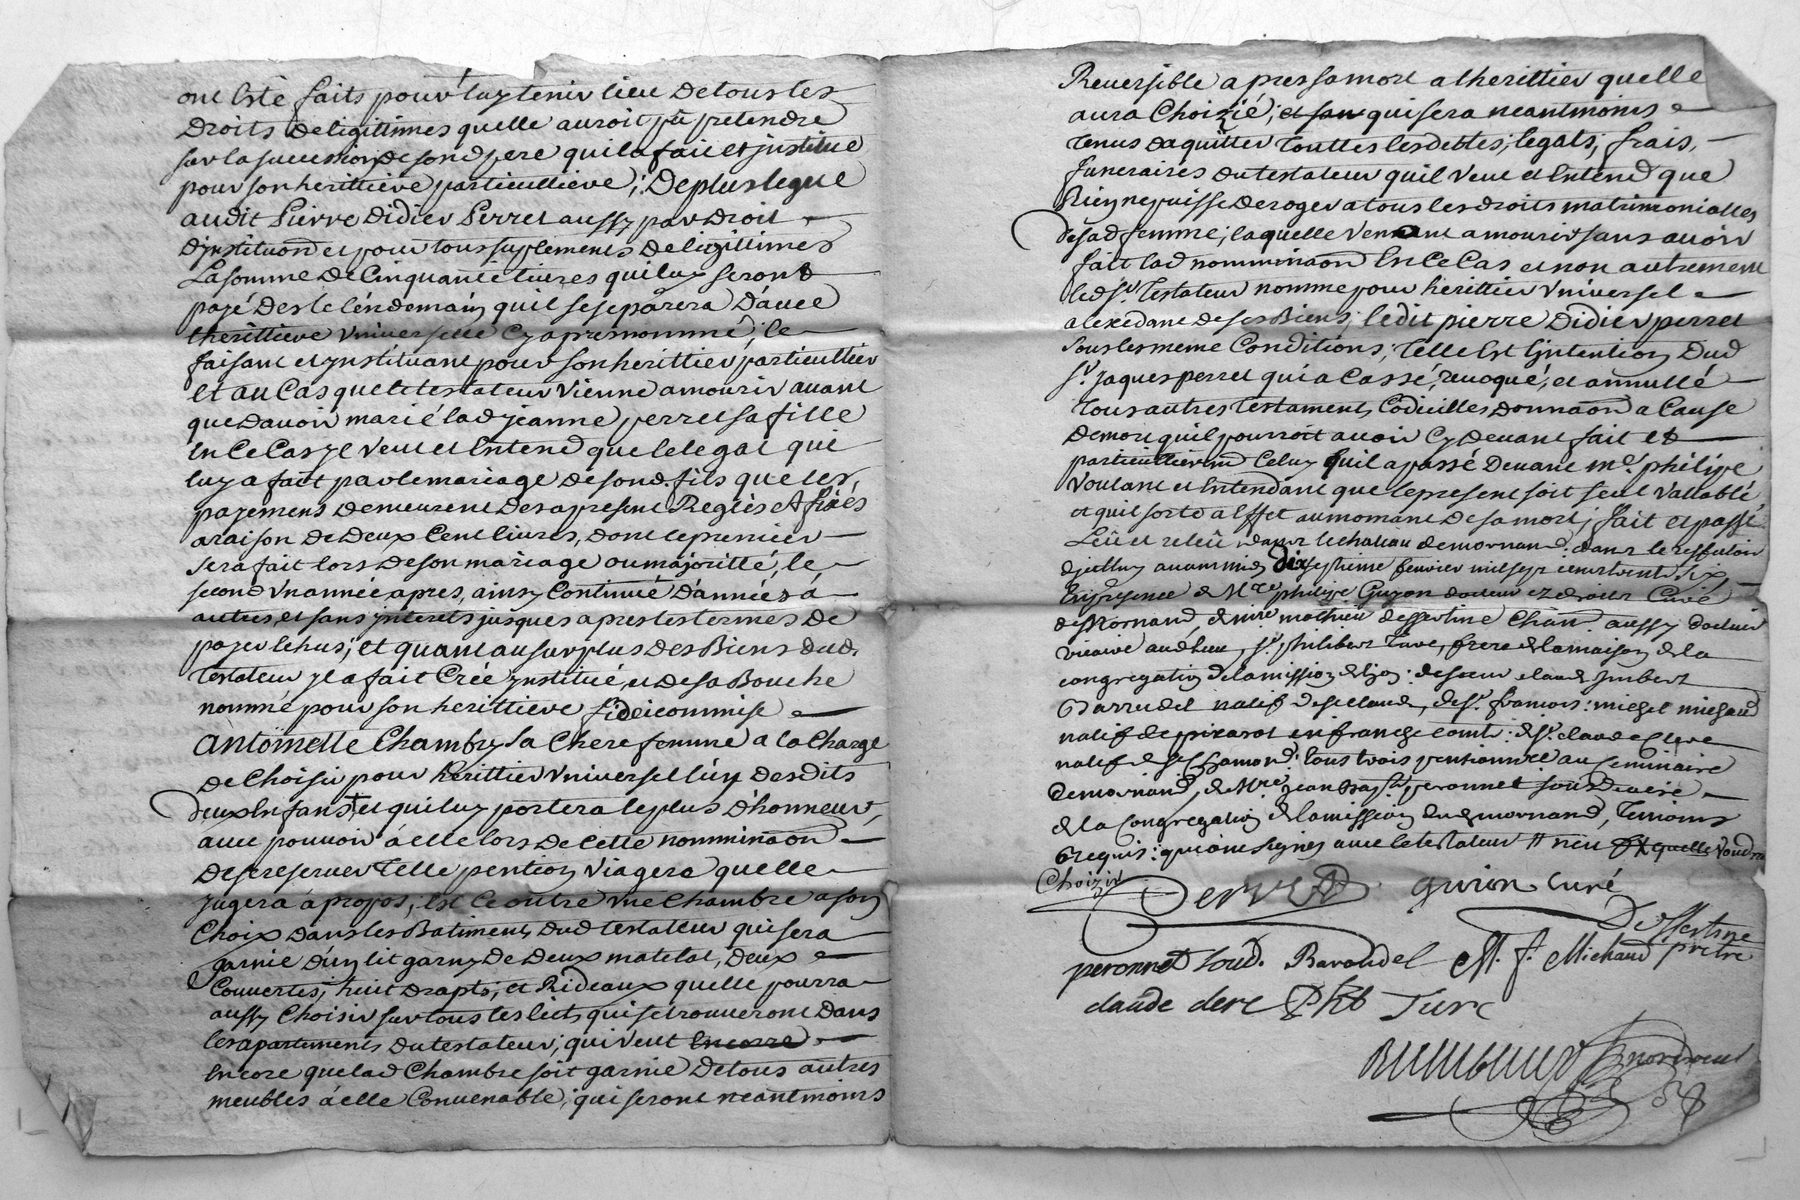 ont Esté faits pour luy tenir lieu de tous les
droits de ligitimes quelle auroit pû pretendre
sur la succession de sond pere qui la fait et justitue
pour son herittiere particulliere; De plus legue
audit Pierre Didier Perret aussy par droit
d'jnstituaon et pour tous suplements de ligitimes
La somme de Cinquante livres qui luy seront
payé des le lendemain quil se separera D'avec
lherittiere Vniverselle Cy apres nommé, le
faisant et jnstituant pour son herittier particullier
et au Cas que le testateur Vienne a mourir avant
que davoir marié lad jeanne perret sa fille
En Ce Cas jl veut et Entend que le legat qui
luy a fait par le mariage de sond. fils que les
payemens demeurent Des apresent Reglés et fixés
a raison de Deux Cent livres, dont le premier
sera fait lors de son mariage ou majoritté, le
second vn année apres, ainsy Continué D'années á
autres et sans jnterets jusques apres les termes de
payer Echus; et quant au surplus des Biens dud.
Testateur jl a fait Créé jnstitué, et de sa Bouche
nommé pour son herittiere fideicommise
Antoinette Chambry sa Chere femme a la Charge
de Choisir pour herittier vniversel l'un desdits
deux Enfants et qui luy portera le plus d'honneur,
avec pouvoir á elle lors de Cette nomminaon
De se reserver Telle pention Viagere quelle
jugera á propos, Et Ce outre vne Chambre a son
Choix dans les Batiments dud testateur qui sera
garnie d'un lit garny de Deux matelat, deux
Couvertes, huit Drapts, et Rideaux quelle pourra
aussy Choisir sur tous les licts qui se trouveront Dans
les apartements du testateur; qui veut Encorre
Encore que lad Chambre soit garnie De tous autres
meubles á elle Convenable, qui seront neantmoins
Reversible a pres sa mort a lherittier quelle
aura Choizié; et qui sera neantmoins
tenus daquitter touttes les debtes, legats, frais,
funeraires du testateur quil veut et Entend que
Rien ne puisse deroger a tous les droits matrimonialles
de sad femme; laquelle venant a mourir sans avoir
fait lad nomminaon En Ce Cas et non autrement
led sr. Testateur nomme pour herittier vniversel
a lexedant de ses Biens, ledit pierre Didier perret
sous les meme Conditions; telle Est l'jntention Dud
sr. jaques perret qui a Cassé, revoqué, et annullé
Tous autres testaments Codicilles donnaon a Cause
de mort quil pourroit avoir Cy devant fait et
particullierem Celuy quil a passé devant me. philipe
Voulant et Entendant que le present soit seul vallablé
et quil sorte a Effet au momant de sa mort; fait et passé
Leü et releü dans le chateau de mornand. dans le reffectoir
djcelluy avant midy dix septieme fevrier mil sept cent trente six
En presence de Mre philipe Guyon docteur et droits Curé
de Mornand, de mre mathieu dessertine Chan. aussy docteur
vicaire audit lieu, sr. philibert Turc, frere de la maison de la
congregation de la mission de lyon: de sieur claude jmbert
Barrudel natif de st claude, de sr. francois: michel michaud
natif de en franche comté: de sr. claude Clerc
natif de st chamond: tous trois pentionnere au seminaire
de mornand, de Mre jean Bapt peronnet soudiacre
de la Congregation de la mission dud mornand, Temoins
Requis: qui ont signés avec le testateur quelle voudra
Choizir
Perret guion curé
Dessertine
prêtre
peronnet soud. Baraudel M. f. Michaud
claude clerc Phb Turc